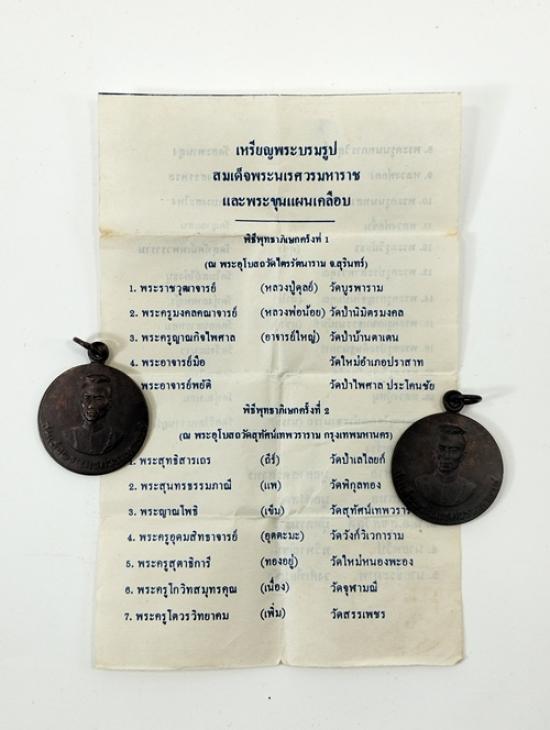 เหรียญพระบรมรูป
สมเด็จพระนเรศวรมหาราช
และพระขุนแผนเคลือบ
พิธีพุทธาภิเษกครั้งที่ 1
(ณ พระอุโบสถวัดไตรรัตนาราม จ.สุรินทร์)
1. พระราชวุฒาจารย์ (หลวงปู่ดุลย์) วัดบูรพาราม
2. พระครูมงคลคณาจารย์ (หลวงพ่อน้อย) วัดป่านิมิตรมงคล
3. พระครูญาณกิจไพศาล (อาจารย์ใหญ่) วัดป่าบ้านตาเตน
4. พระอาจารย์มือ วัดใหม่อำเภอปราสาท
พระอาจารย์พยัติ วัดป่าไพศาล ประโคนชัย
พิธีพุทธาภิเษกครั้งที่ 2
(ณ พระอุโบสถวัดสุทัศน์เทพวราราม กรุงเทพมหานคร)
1. พระสุทธิสารเถร (ถีร์) วัดป่าเลไลยก์
2. พระสุนทรธรรมภาณี (แพ) วัดพิกุลทอง
3. พระญาณโพธิ (เข็ม) วัดสุทัศน์เทพวรา
4. พระครูอุดมสิทธาจารย์ (อุตตะมะ) วัดวังก์วิเวการาม
5. พระครูสุตาธิการี (ทองอยู่) วัดใหม่หนองพะอง
6. พระครูโกวิทสมุทรคุณ (เนื่อง) วัดจุฬามณี
7. พระครูโตวรวิทยาคม (เพิ่ม) วัดสรรเพชร